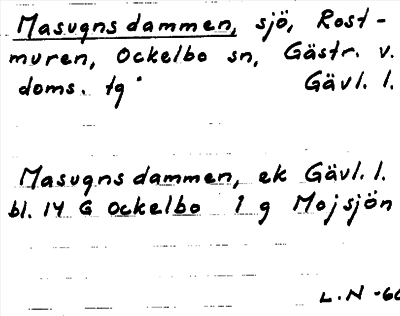 Masugnsdammen, sjö, Rost-
muren, Ockelbo sn, Gästr. v.
doms. tg Gävl. l.
Masugnsdammen, ek Gävl. l.
bl. 14 G Ockelbo 1 g Mojsjön
L.N -66